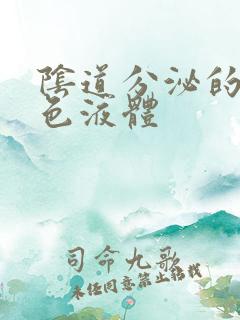 陰道分泌的
色液體
司命九歌
未经同意禁止转载